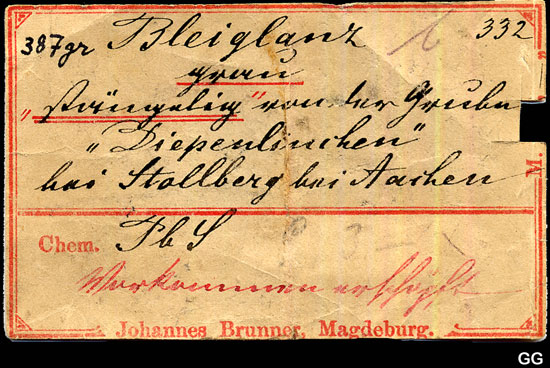 387gr Bleiglanz 332
grau
„stängelig" von der Grube
„Diepenlinchen"
bei Stollberg bei Aachen
M.
Chem. PbS
Vorkommen erschöpft
Johannes Brunner, Magdeburg.
GG